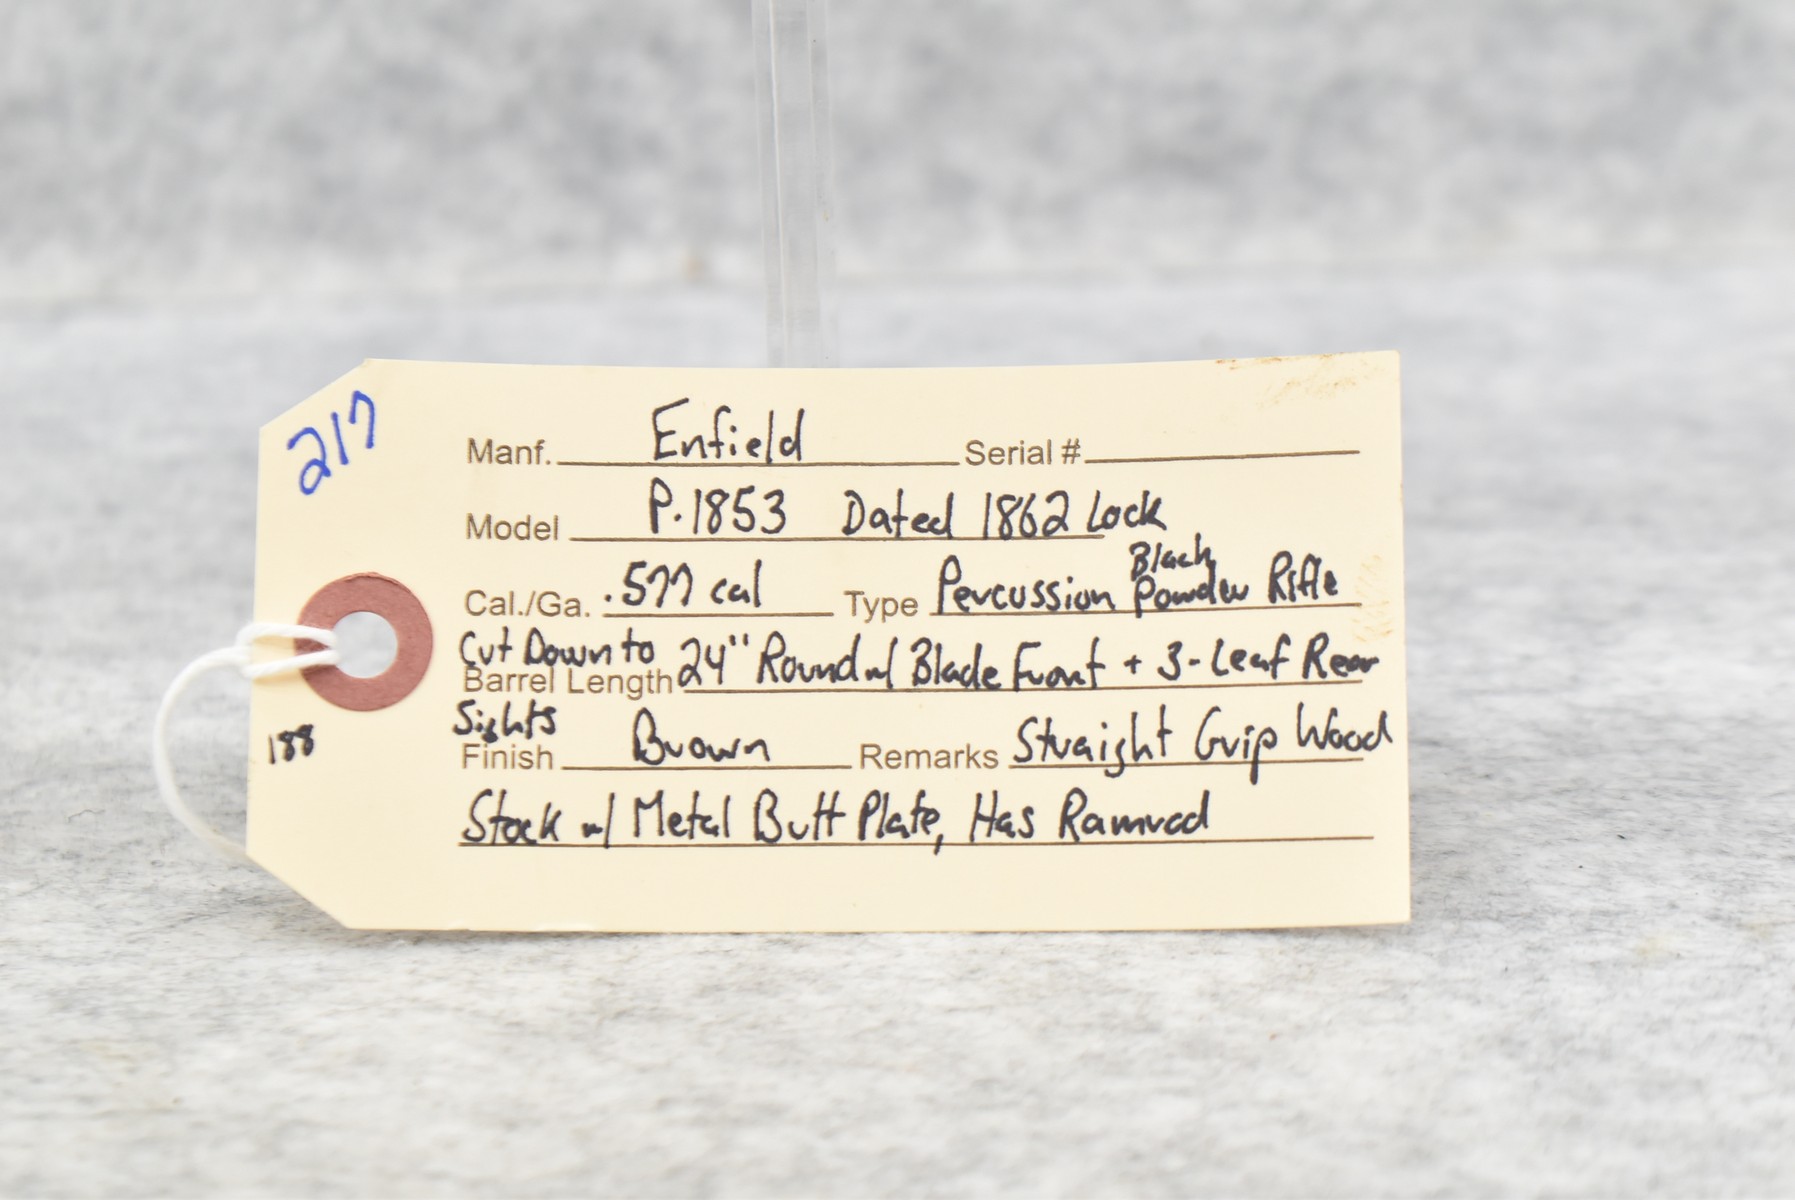 217
Manf. Enfield Serial #
Model P.1853 Dated 1862 Lock
Black
Cal./Ga. .577 cal Type Percussion Powder Rifle
Cut Down to
Barrel Length 24" Round w/ Blade Front + 3-Leaf Rear
Sights
188
Finish Brown Remarks Straight Grip Wood
Stock w/ Metal Butt Plate, Has Ramrod